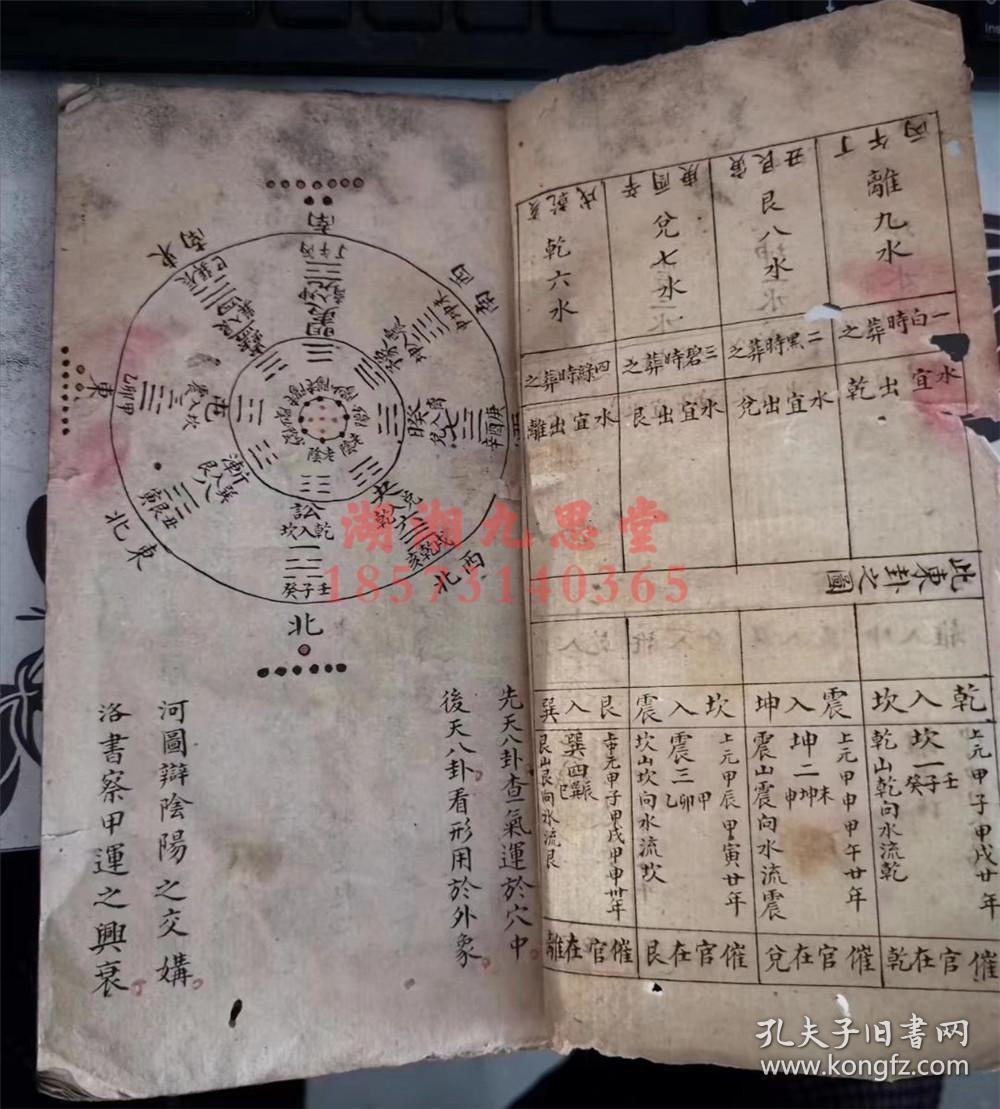 丙午丁
離九水
一白時葬之
水宜出乾
丑艮寅
艮八水
二黑時葬之
水宜出兌
庚酉辛
兌七水
三碧時葬之
水宜出艮
戌乾亥
乾六水
四綠時葬之
水宜出離
此東卦之圖
乾入坎
上元甲子甲戌廿年
坎一
壬子癸
乾山乾向水流乾
催官在乾
震入坤
上元甲申甲午廿年
坤二
未坤申
震山震向水流震
催官在兌
坎入震
上元甲辰甲寅廿年
震三
甲卯乙
坎山坎向水流坎
催官在艮
艮入巽
中元甲子甲戌甲申卅年
巽四
艮山艮向水流艮
催官在離
南
丁午丙
西南
東南
東
乙卯甲
屯
睽
庚酉辛
東北
漸
巽入艮
八
丑艮寅
西北
兌入乾
六
戌乾亥
夬
訟
乾入坎
壬子癸
北
老陰
先天八卦查氣運於穴中
後天八卦看形用於外象
河圖辯陰陽之交媾
洛書察甲運之興衰
湖湘九思堂
18573140365
孔夫子旧书网
www.kongfz.com